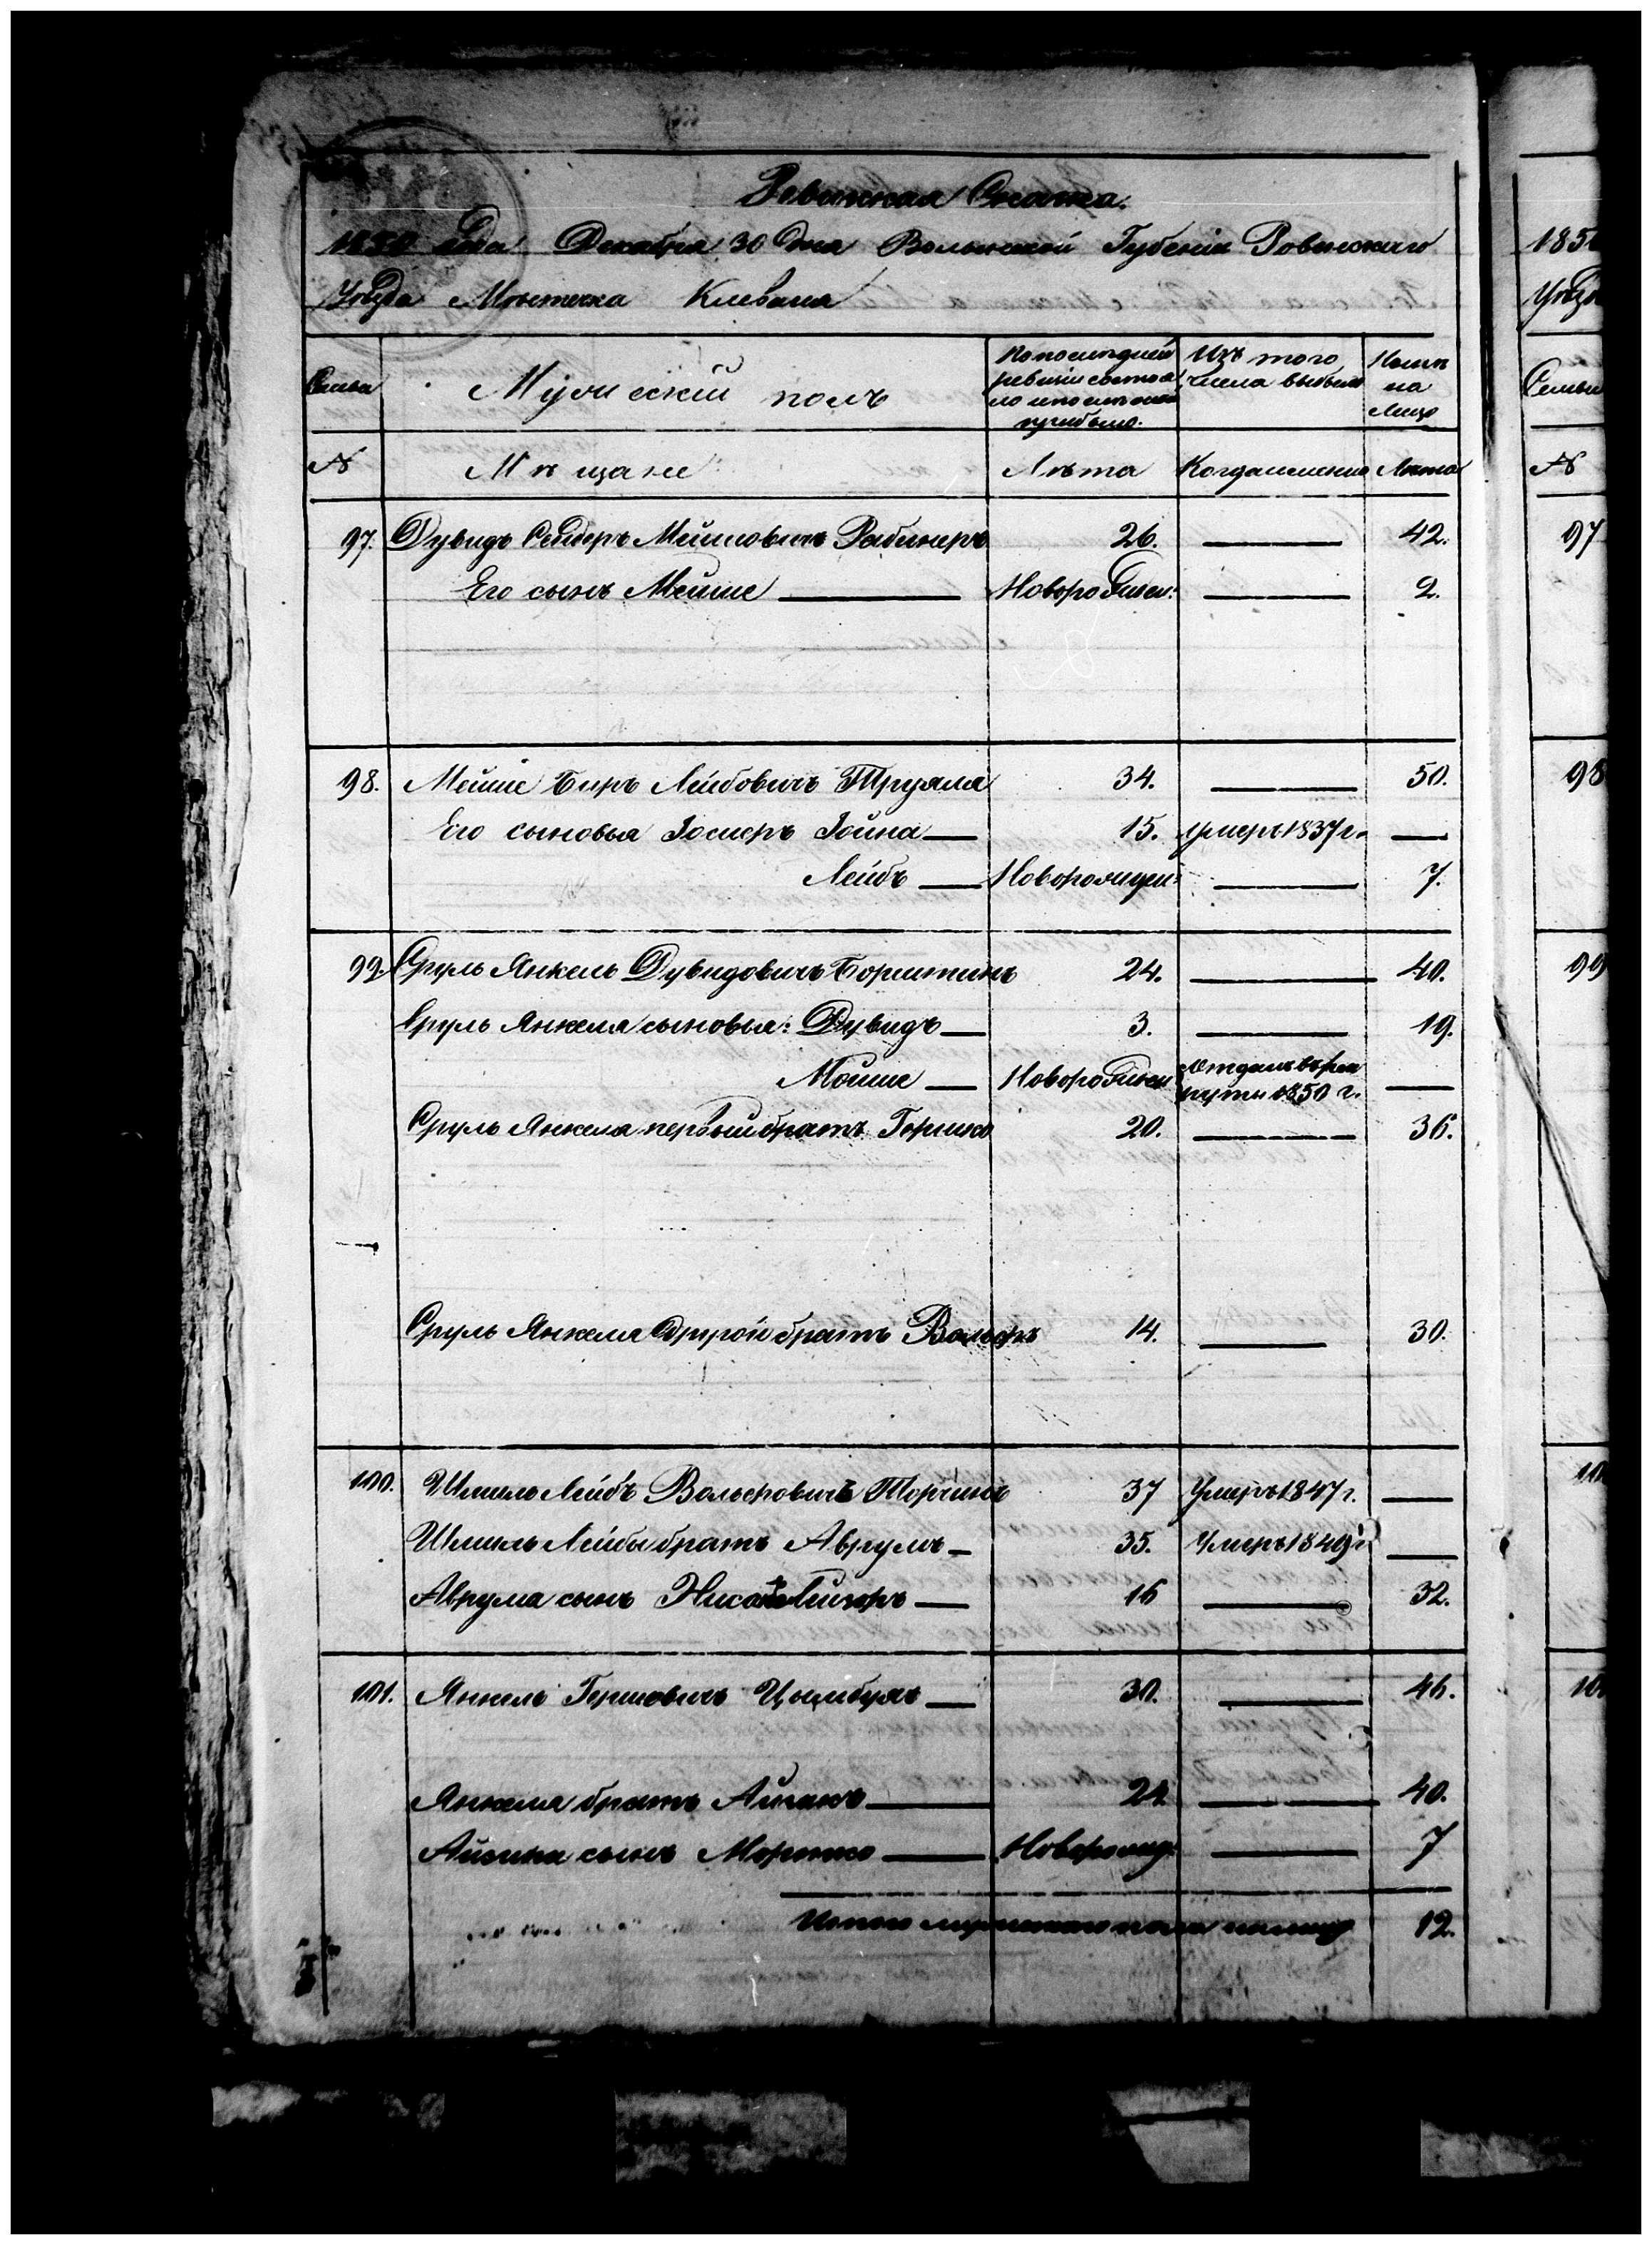 Ревизская Сказка.
1850 года Декабря 30 дня Волынской Губеніи Ровенскаго
Уѣзда Мѣстечка Клеваня
1850
Уѣзд
Семьи Мужескій полъ По послѣдней ревизіи состояло и послѣ того прибыло. Изъ того числа выбыло Нынѣ на лицо
Семьи
№ Мѣщане Лѣта Когда именно Лѣта
№
97. Дувидъ Сендеръ Мейшовичъ Рабинеръ 26. 42.
97
Его сынъ Мейше Новорожден: 2.
98. Мейше Беръ Лейбовичъ 34. 50.
98
Его сыновья Іосифъ Іойна 15. умеръ 1837 г. —
Лейбъ — Новорожден: 7.
99. Сруль Янкель Дувидовичъ 24. 40.
99
Сруль Янкеля сыновья: Дувидъ — 3. 19.
Мойше — Новорожден Отданъ въ рекруты 1850 г. —
Сруль Янкеля первый братъ Гершко 20. 36.
Сруль Янкеля другой братъ Вольфъ 14. 30.
100. Шмиль Лейбъ Вольфовичъ Торчинъ 37 Умеръ 1847 г. —
Шмиль Лейбы братъ Аврумъ — 35. Умеръ 1849 г —
Аврума сынъ — 16 32.
101. Янкель Гершовичъ Цымбуль — 30. 46.
Янкеля братъ Айзикъ 24 40.
Айзика сынъ Мошко Новорожд: 7
Итого мужескаго пола на лицо 12.